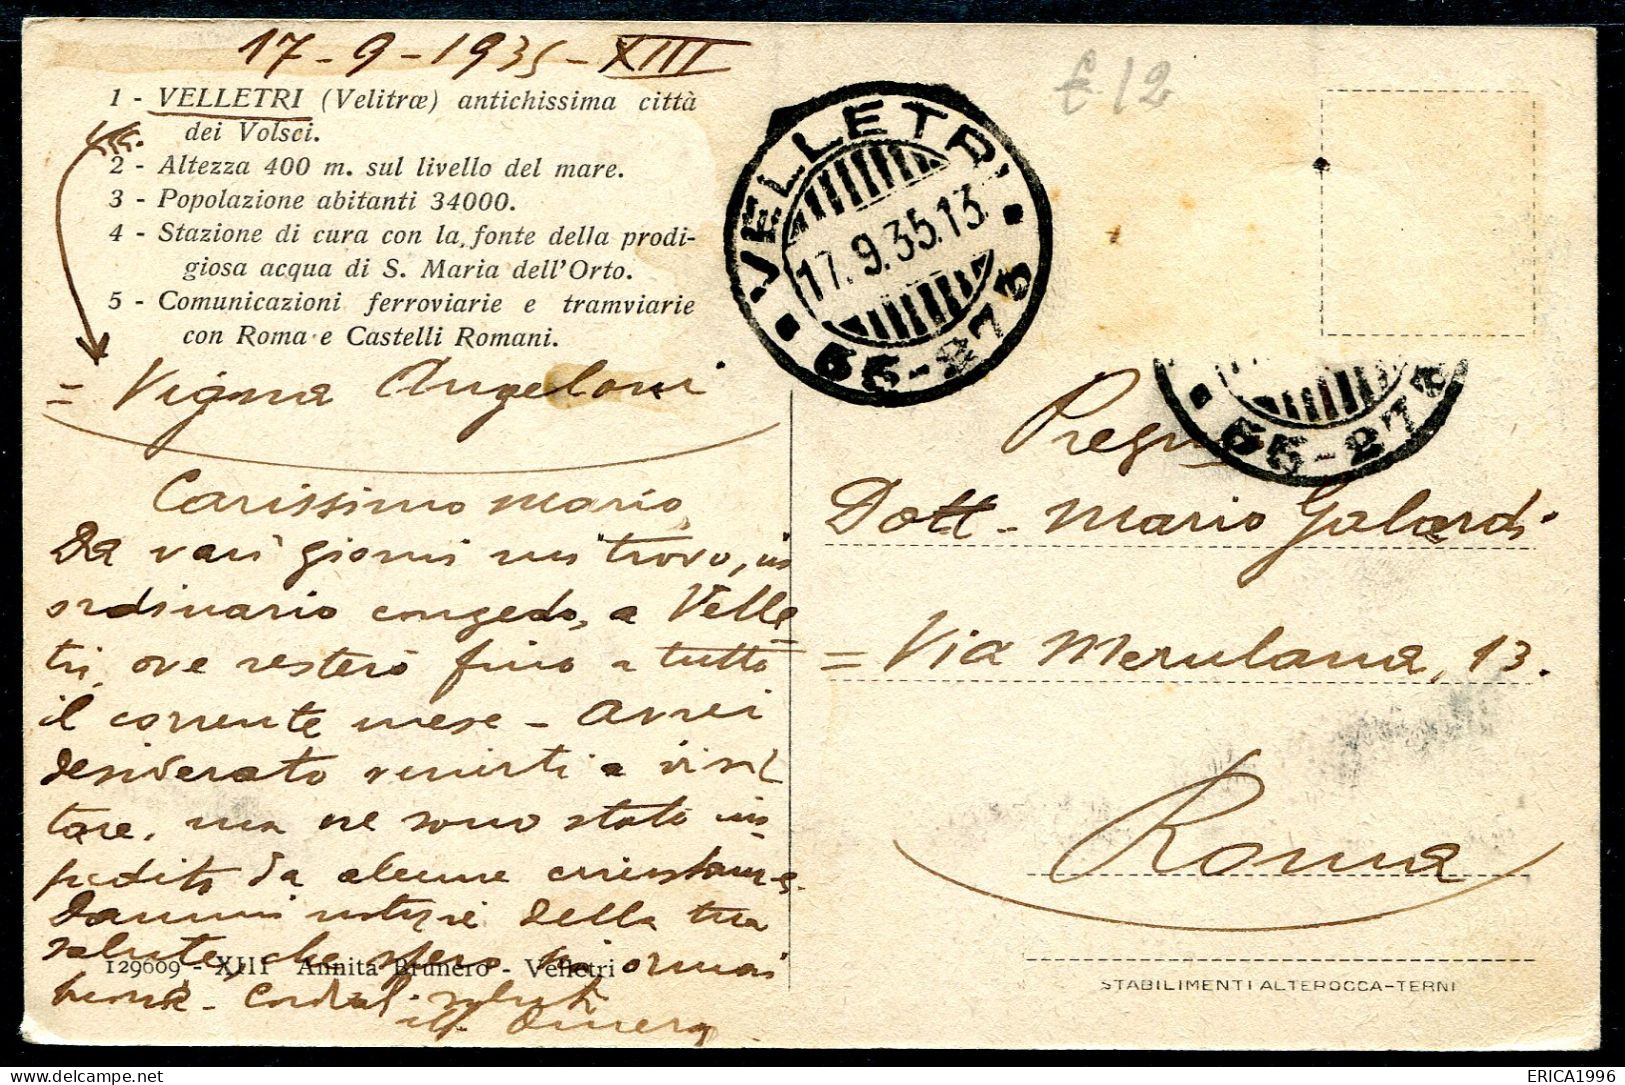 17-9-1935-XIII
1 - VELLETRI (Velitræ) antichissima città
dei Volsci.
2 - Altezza 400 m. sul livello del mare.
3 - Popolazione abitanti 34000.
4 - Stazione di cura con la fonte della prodi-
giosa acqua di S. Maria dell'Orto.
5 - Comunicazioni ferroviarie e tramviarie
con Roma e Castelli Romani.
= Vigna Angeloni
Carissimo Mario,
Da vari giorni mi trovo, in
ordinario congedo, a Velle
tri, ove resterò fino a tutto
il corrente mese - Avrei
desiderato venirti a visi
tare, ma ne sono stato im
pedito da alcune
Dammi notizie della tua
salute, che spero sia ormai
buona. Cordiali saluti
129609 - XIII Annita Brunero - Velletri
£12
VELLETRI
17.9.35.13
56-273
56-273
Preg
Dott. Mario Galardi
= Via Merulana, 13.
Roma
STABILIMENTI ALTEROCCA-TERNI
ERICA1996